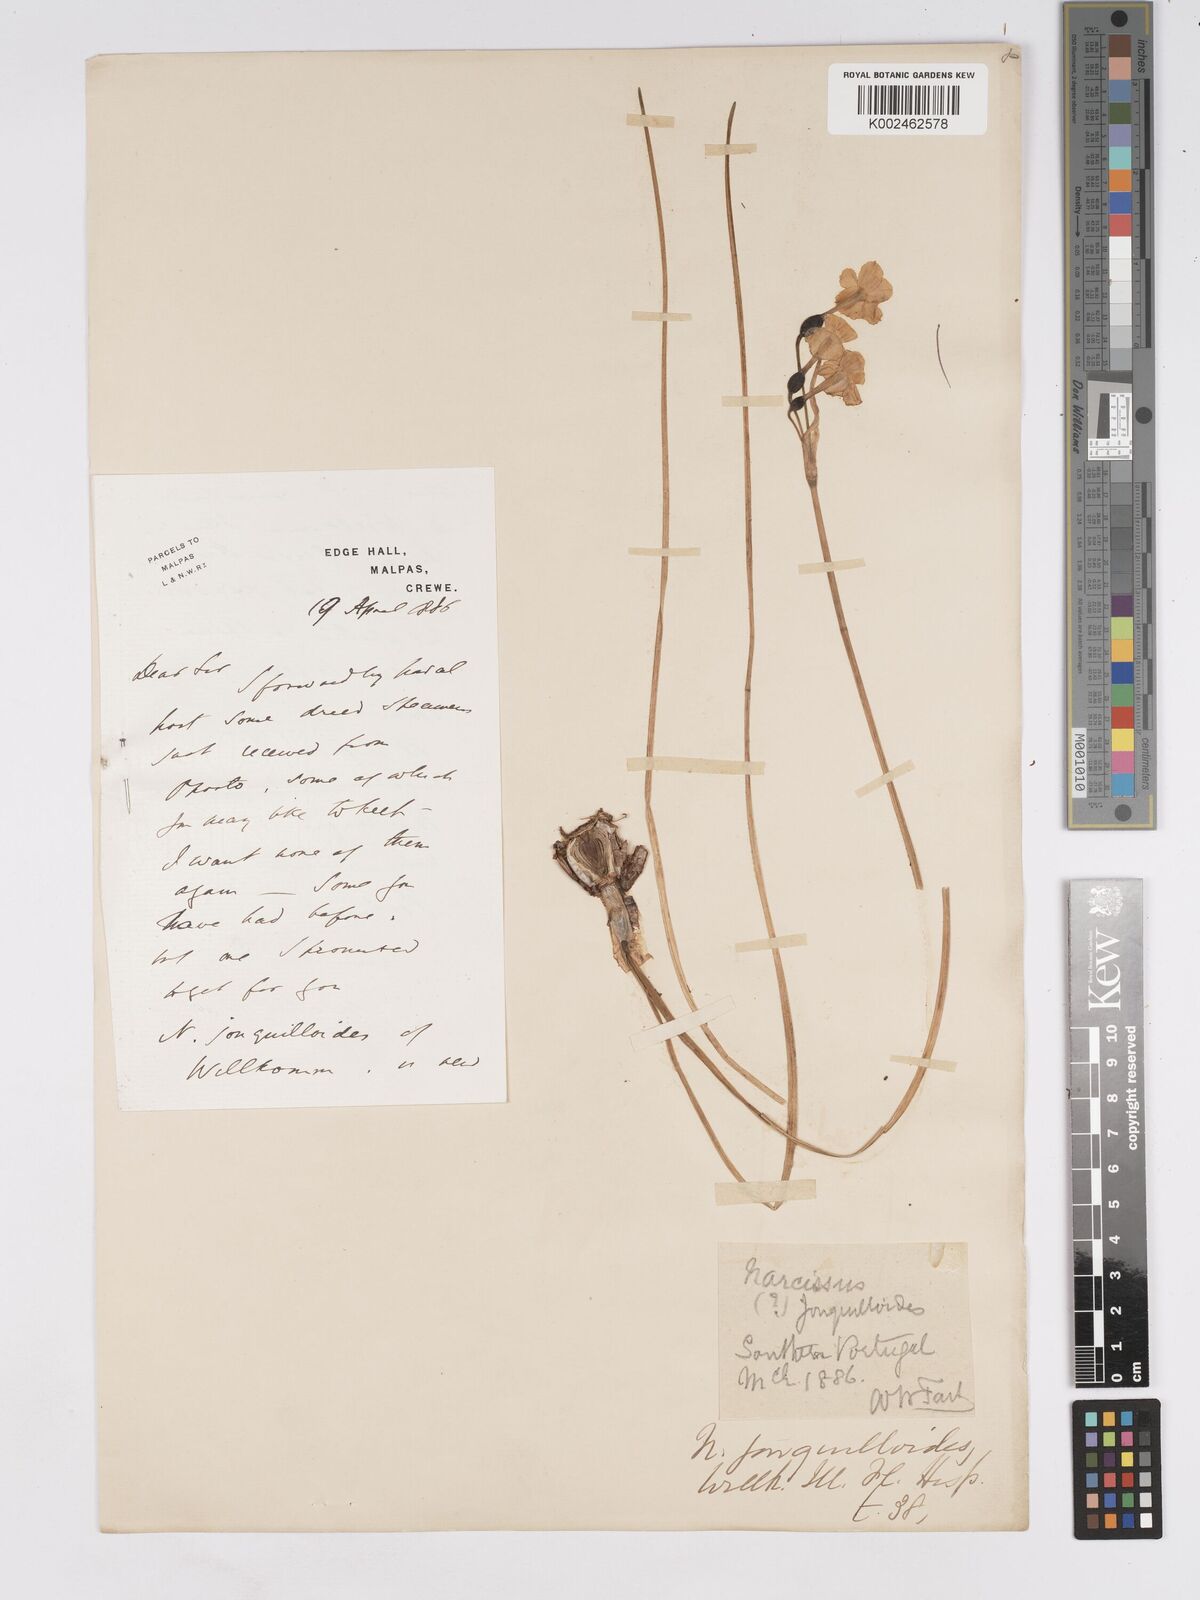 ROYAL BOTANIC GARDENS KEW
K002462578
PARCELS TO
MALPAS
L & N.W.RY
EDGE HALL,
MALPAS,
CREWE.
19 April 1886
Dear Sir
I forward by parcel
post some dried specimens
just received from
Oporto, some of which
you may like to keep -
I want none of them
again — Some you
have had before,
but one I promised
to get for you
N. jonquilloides of
Willkomm. is new
Narcissus
(?) Jonquilloides
Southern Portugal
Mch. 1886.
N. jonquilloides,
Willk. Ill. Fl. Hisp.
t. 38,
inches
centimetres
Density
Don Williams
M001010
Kew
Royal Botanic Gardens
copyright reserved
0 1 2 3 4 5 6 7 8 9 10
cm